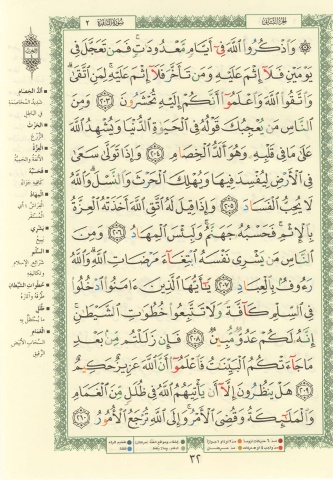 الجزء الثاني
سورة البقرة ٢
وَاذْكُرُوا اللَّهَ فِي أَيَّامٍ مَعْدُودَاتٍ فَمَن تَعَجَّلَ فِي
يَوْمَيْنِ فَلَا إِثْمَ عَلَيْهِ وَمَن تَأَخَّرَ فَلَا إِثْمَ عَلَيْهِ لِمَنِ اتَّقَى
وَاتَّقُوا اللَّهَ وَاعْلَمُوا أَنَّكُمْ إِلَيْهِ تُحْشَرُونَ ٢٠٣ وَمِنَ
النَّاسِ مَن يُعْجِبُكَ قَوْلُهُ فِي الْحَيَوٰةِ الدُّنْيَا وَيُشْهِدُ اللَّهَ
عَلَىٰ مَا فِي قَلْبِهِ وَهُوَ أَلَدُّ الْخِصَامِ ٢٠٤ وَإِذَا تَوَلَّىٰ سَعَىٰ
فِي الْأَرْضِ لِيُفْسِدَ فِيهَا وَيُهْلِكَ الْحَرْثَ وَالنَّسْلَ وَاللَّهُ
لَا يُحِبُّ الْفَسَادَ ٢٠٥ وَإِذَا قِيلَ لَهُ اتَّقِ اللَّهَ أَخَذَتْهُ الْعِزَّةُ
بِالْإِثْمِ فَحَسْبُهُ جَهَنَّمُ وَلَبِئْسَ الْمِهَادُ ٢٠٦ وَمِنَ
النَّاسِ مَن يَشْرِي نَفْسَهُ ابْتِغَاءَ مَرْضَاتِ اللَّهِ وَاللَّهُ
رَءُوفٌ بِالْعِبَادِ ٢٠٧ يَٰأَيُّهَا الَّذِينَ ءَامَنُوا ادْخُلُوا
فِي السِّلْمِ كَافَّةً وَلَا تَتَّبِعُوا خُطُوَٰتِ الشَّيْطَٰنِ
إِنَّهُ لَكُمْ عَدُوٌّ مُّبِينٌ ٢٠٨ فَإِن زَلَلْتُم مِّن بَعْدِ
مَا جَاءَتْكُمُ الْبَيِّنَٰتُ فَاعْلَمُوا أَنَّ اللَّهَ عَزِيزٌ حَكِيمٌ
٢٠٩ هَلْ يَنظُرُونَ إِلَّا أَن يَأْتِيَهُمُ اللَّهُ فِي ظُلَلٍ مِّنَ الْغَمَامِ
وَالْمَلَٰئِكَةُ وَقُضِيَ الْأَمْرُ وَإِلَى اللَّهِ تُرْجَعُ الْأُمُورُ ٢١٠
ألدّ الخصام
شديد المخاصمة
في الباطل
الحرث
الزرع
العزّة
الأنفة والحمية
فحسبه
كافيه جزاءً
المهاد
الفراش، أي
المستقر
يشري
يبيع
السلم
شرائع الإسلام
وتكاليفه
خطوات الشيطان
طرقه وآثاره
ظلل
ما يستظلّ به
الغمام
السحاب الأبيض
الرقيق
٣٢